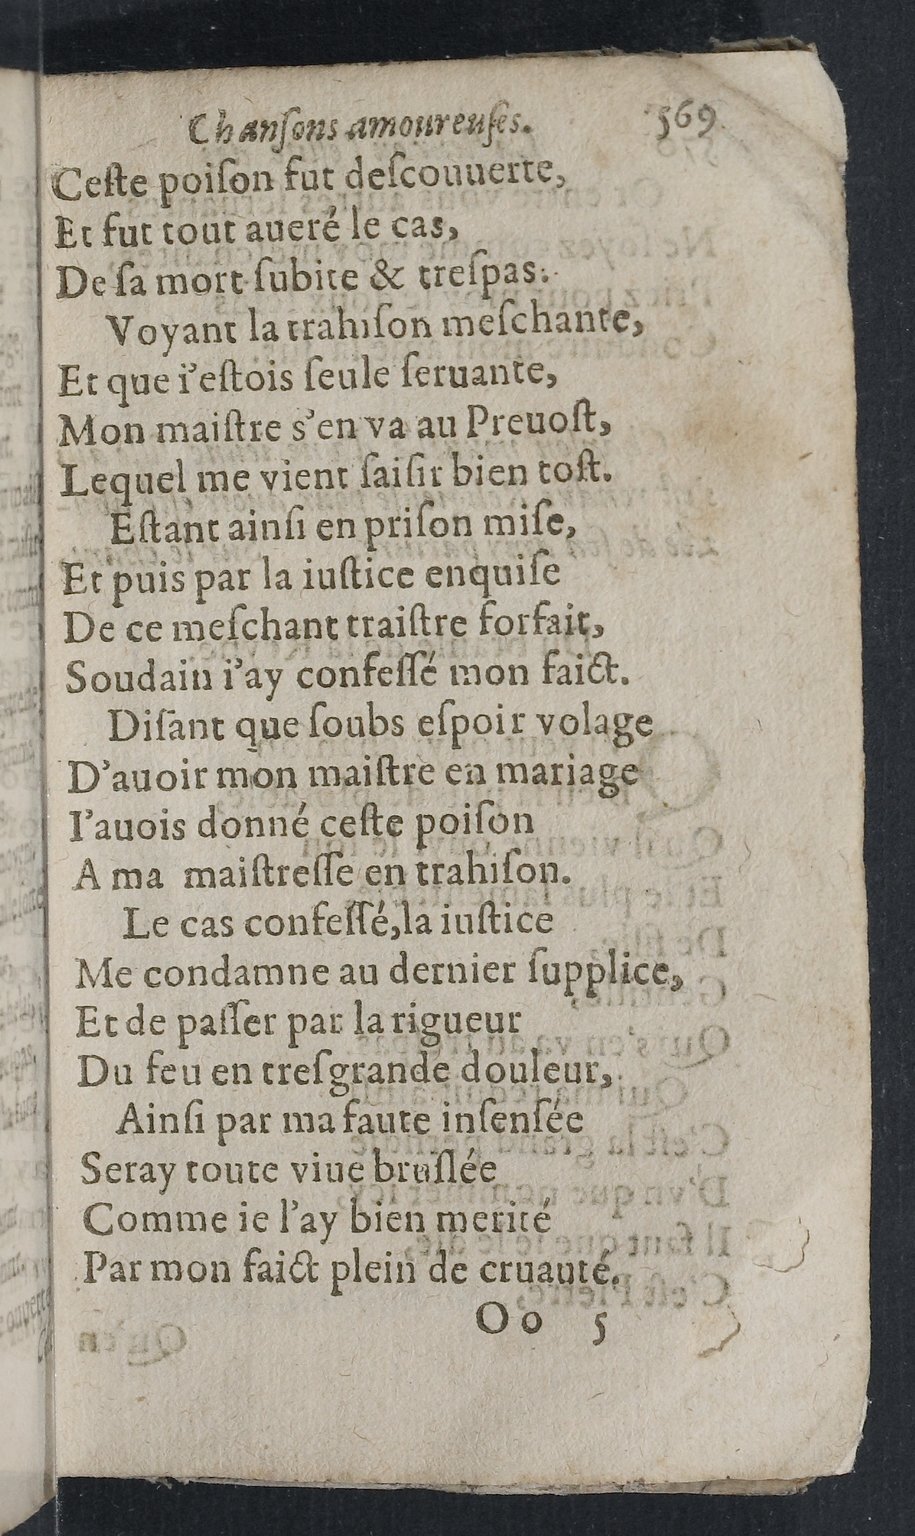 Chanſons amoureuſes. 569
Ceſte poiſon fut deſcouuerte,
Et fut tout aueré le cas,
De ſa mort ſubite & treſpas.
Voyant la trahiſon meſchante,
Et que i'eſtois ſeule ſeruante,
Mon maiſtre s'en va au Preuoſt,
Lequel me vient ſaiſir bien toſt.
Eſtant ainſi en priſon miſe,
Et puis par la iuſtice enquiſe
De ce meſchant traiſtre forfait,
Soudain i'ay confeſſé mon faict.
Diſant que ſoubs eſpoir volage
D'auoir mon maiſtre en mariage
I'auois donné ceſte poiſon
A ma maiſtreſſe en trahiſon.
Le cas confeſſé, la iuſtice
Me condamne au dernier ſupplice,
Et de paſſer par la rigueur
Du feu en treſgrande douleur,
Ainſi par ma faute inſenſée
Seray toute viue bruſlée
Comme ie l'ay bien merité
Par mon faict plein de cruauté.
Oo 5